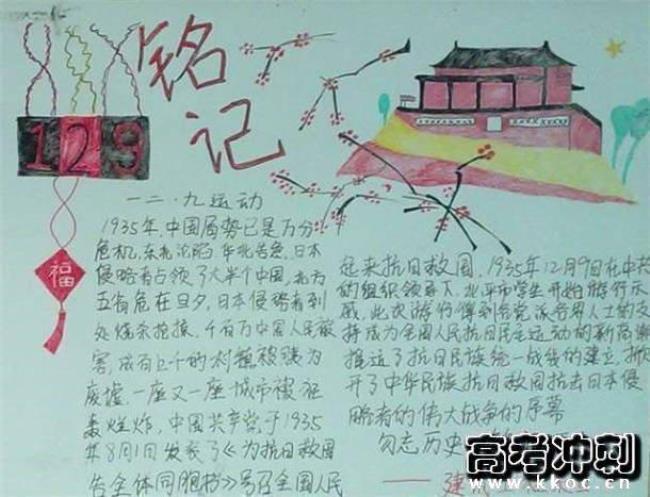 铭记
129
福
一二·九运动
1935年,中国局势已是万分
危机,东北沦陷,华北告急,日本
侵略者占领了大半个中国,北方
五省危在旦夕,日本侵略者到
处烧杀抢掠,千百万中国人民被
害,成百上个的村镇被践为
废墟,一座又一座城市被狂
轰烂炸,中国共产党于1935
年8月1日发表了《为抗日救国
告全体同胞书》号召全国人民
起来抗日救国,1935年12月9日在中共
的组织领导下,北平市学生开始游行示
威,此次游行得到各党派各界人士的支
持成为全国人民抗日民主运动的新高潮
推近了抗日民族统一战线的建立,掀
开了中华民族抗日救国抗击日本侵
略者的伟大战争的序幕
勿忘历史
高考冲刺
www.kkoc.cn